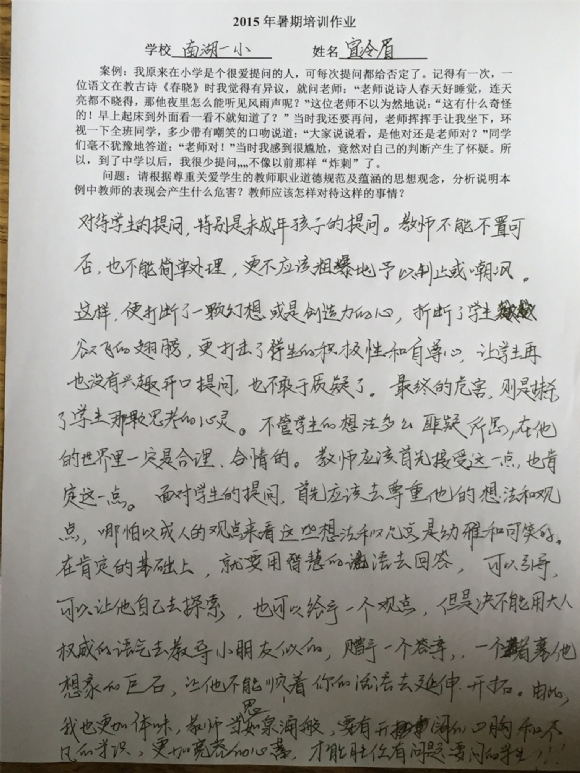 2015年暑期培训作业
学校 南湖一小 姓名 宜泠眉
案例：我原来在小学是个很爱提问的人，可每次提问都给否定了。记得有一次，一
位语文在教古诗《春晓》时我觉得有异议，就问老师：“老师说诗人春天好睡觉，连天
亮都不晓得，那他夜里怎么能听见风雨声呢？”这位老师不以为然地说：“这有什么奇怪
的！早上起床到外面看一看不就知道了？”当时我还要再问，老师挥挥手让我坐下，环
视一下全班同学，多少带有嘲笑的口吻说道：“大家说说看，是他对还是老师对？”同学
们毫不犹豫地答道：“老师对！”当时我感到很尴尬，竟然对自己的判断产生了怀疑。所
以，到了中学以后，我很少提问……不像以前那样“炸刺”了。
问题：请根据尊重关爱学生的教师职业道德规范及蕴涵的思想观念，分析说明本
例中教师的表现会产生什么危害？教师应该怎样对待这样的事情？
对待学生的提问，特别是未成年孩子的提问。教师不能不置可
否，也不能简单处理，更不应该粗暴地予以制止或嘲讽。
这样，便打断了一颗幻想或是创造力的心，折断了学生
欲飞的翅膀，更打击了学生的积极性和自尊心，让学生再
也没有兴趣开口提问，也不敢于质疑了。最终的危害，则是
了学生那敢思考的心灵。不管学生的想法多么匪疑所思，在他
的世界里一定是合理、合情的。教师应该首先接受这一点，也肯
定这一点。面对学生的提问，首先应该去尊重他的想法和观
点，哪怕以成人的观点来看这些想法和观点是幼稚和可笑的。
在肯定的基础上，就要用智慧的话语去回答，可以引导，
可以让他自己去探索，也可以给予一个观点，但是决不能用大人
权威的语气去教导小朋友似的，赐予一个答案，一个 裹他
想象的巨石，让他不能顺着你的话语去延伸、开拓。由此，
我也更加体味，教师当思如泉涌般，要有开阔的心胸和不
凡的学识，更加宽容的心态，才能胜任有问题要问的学生！！！